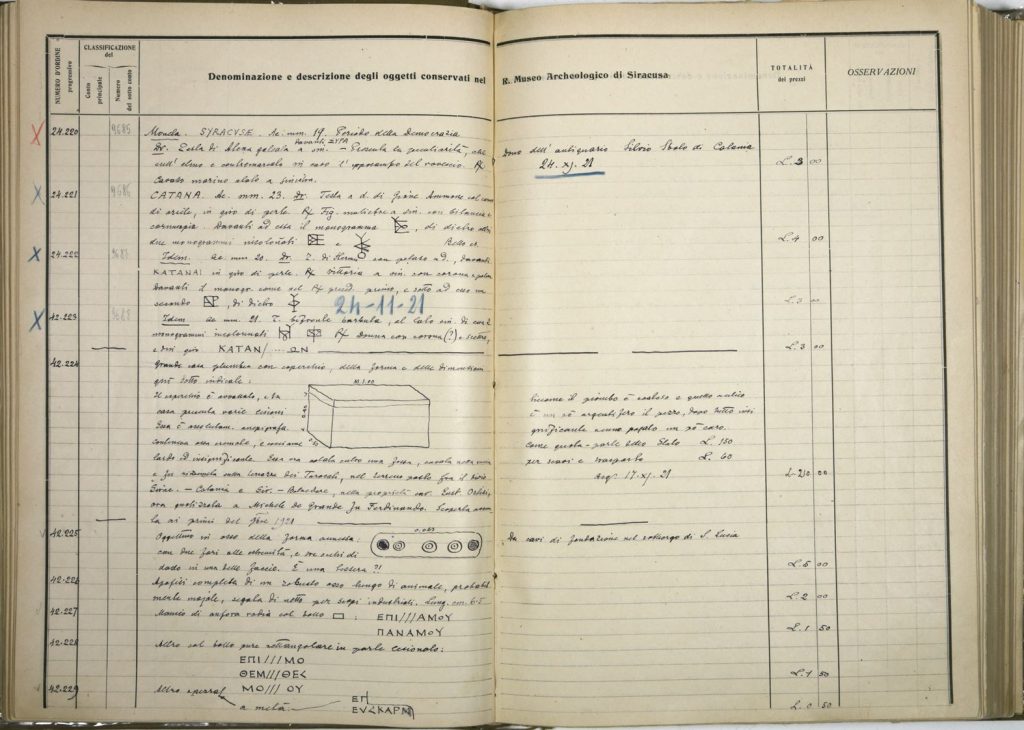 NUMERO D'ORDINE progressivo
CLASSIFICAZIONE del
Conto principale
Numero del sotto conto
Denominazione e descrizione degli oggetti conservati nel R. Museo Archeologico di Siracusa
TOTALITÀ dei prezzi
OSSERVAZIONI
24.220
Moneta. SYRACVSÆ. Ae. mm. 19. Periodo della Democrazia
davanti ΣΥΡΑ
Dr. Testa di Atena galeata a sin. - Presenta la peculiarità, che
sull' elmo è contromarcato in cavo l' del rovescio. R/
Cavallo marino alato a sinistra.
Dono dell' antiquario Silvio di Catania
24. XI. 21
L. 3 00
24.221
CATANA. Ae. mm. 23. Dr. Testa a d. di Giove Ammone col corno
di ariete, in giro di perle. R/ Fig. muliebre a sin. con bilancia e
cornucopia. Davanti ad essa il monogramma , di dietro altri
due monogrammi e
L. 4 00
24.222
Idem. Ae. mm. 20. Dr. T. di Hermes con petaso a d., davanti
KATANAI in giro di perle. R/ Vittoria a sin. con corona e palma
Davanti il monogr. come nel R/ preced. primo, e sotto ad esso un
secondo , di dietro
24-11-21
L. 3 00
42.223
Idem ae mm. 21. T. bifronte barbuta, al lato sin. di cui 2
monogrammi R/ Donna con corona (?) e scettro,
e in giro KATAN/.....ΩN
L. 3 00
42.224
Grande cassa plumbea con coperchio, della forma e delle dimensioni
qui sotto indicate:
m. 1.10
Il coperchio è avvallato, e la
cassa presenta varie lesioni
Essa è assolutam. anepigrafa.
Conteneva ossa cremate, e vasellame
tardo ed insignificante. Essa era calata entro una fossa, cavata nella
e fu rinvenuta sulla terrazza dei Teracati, nel terreno posto fra il bivio
Sirac. - Catania e Sir. - Belvedere, nella proprietà cav. Eust.
ora quotizzata a Michele de Grande fu Ferdinando. Scoperta
la ai primi del 9bre 1921
Siccome il piombo è e questo antico
è un po' argentifero il pezzo, dopo tutto insi
gnificante venne pagato un po' caro.
Come quota-parte dello Stato L. 150
per scavi e trasporto L. 60
Acq. 17. XI. 21
L. 210.00
42.225
Oggettino in osso della forma annessa:
con due fori alle estremità, e tre cerchi di
dado in una delle faccie. È una tessera?!
Da cavi di fondazione nel sobborgo di S. Lucia
L. 5 00
42.226
Apofisi completa di un robusto osso lungo di animale, probabil
mente majale, segata di netto per scopi industriali. Lung. cm. 6.5
L. 2 00
42.227
Manico di anfora rodia col bollo :
ΕΠΙ///ΑΜΟΥ
ΠΑΝΑΜΟΥ
L. 1 50
42.228
Altro col bollo pure rettangolare in parte lesionato:
ΕΠΙ///ΜΟ
ΘΕΜ///ΘΕΣ
ΜΟ///ΟΥ
L. 1 50
42.229
Altro spezzato
a metà
ΕΠ
ΕΥΣΚΑΡΜ
L. 0 50